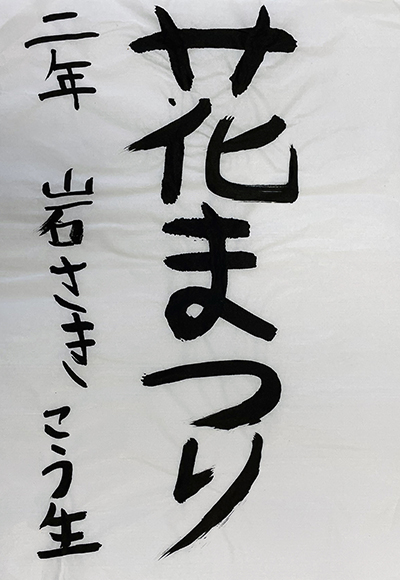 花まつり
二年 岩さき こう生